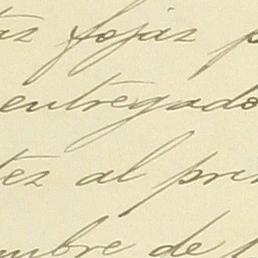 tas fojas p
entregado
tez al pri
mbre de l